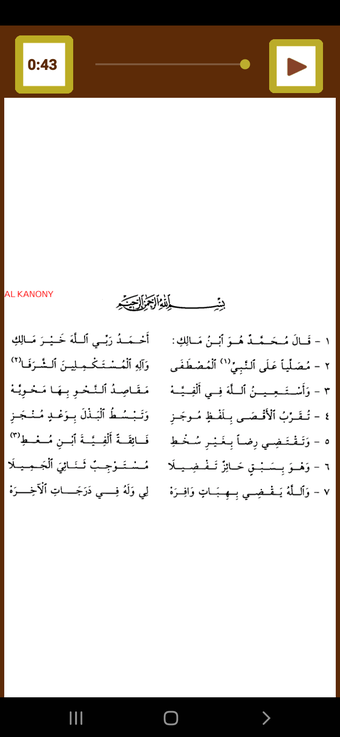 0:43
AL KANONY
بِسْمِ اللَّهِ الرَّحْمَنِ الرَّحِيمِ
١ - قَالَ مُحَمَّدٌ هُوَ ٱبْنُ مَالِكِ : أَحْمَدُ رَبِّي ٱللَّهَ خَيْرَ مَالِكِ
٢ - مُصَلِّياً عَلَى ٱلنَّبِيِّ(١) ٱلْمُصْطَفَى وَآلِهِ ٱلْمُسْتَكْمِلِينَ ٱلشَّرَفَا(٢)
٣ - وَأَسْتَعِينُ ٱللَّهَ فِي أَلْفِيَّهْ مَقَاصِدُ ٱلنَّحْوِ بِهَا مَحْوِيَّهْ
٤ - تُقَرِّبُ ٱلْأَقْصَى بِلَفْظٍ مُوجَزِ وَتَبْسُطُ ٱلْبَذْلَ بِوَعْدٍ مُنْجَزِ
٥ - وَتَقْتَضِي رِضاً بِغَيْرِ سُخْطِ فَائِقَةً أَلْفِيَّةَ ٱبْنِ مُعْطِ(٣)
٦ - وَهْوَ بِسَبْقٍ حَائِزٌ تَفْضِيلَا مُسْتَوْجِبٌ ثَنَائِيَ ٱلْجَمِيلَا
٧ - وَٱللَّهُ يَقْضِي بِهِبَاتٍ وَافِرَهْ لِي وَلَهُ فِي دَرَجَاتِ ٱلْآخِرَهْ